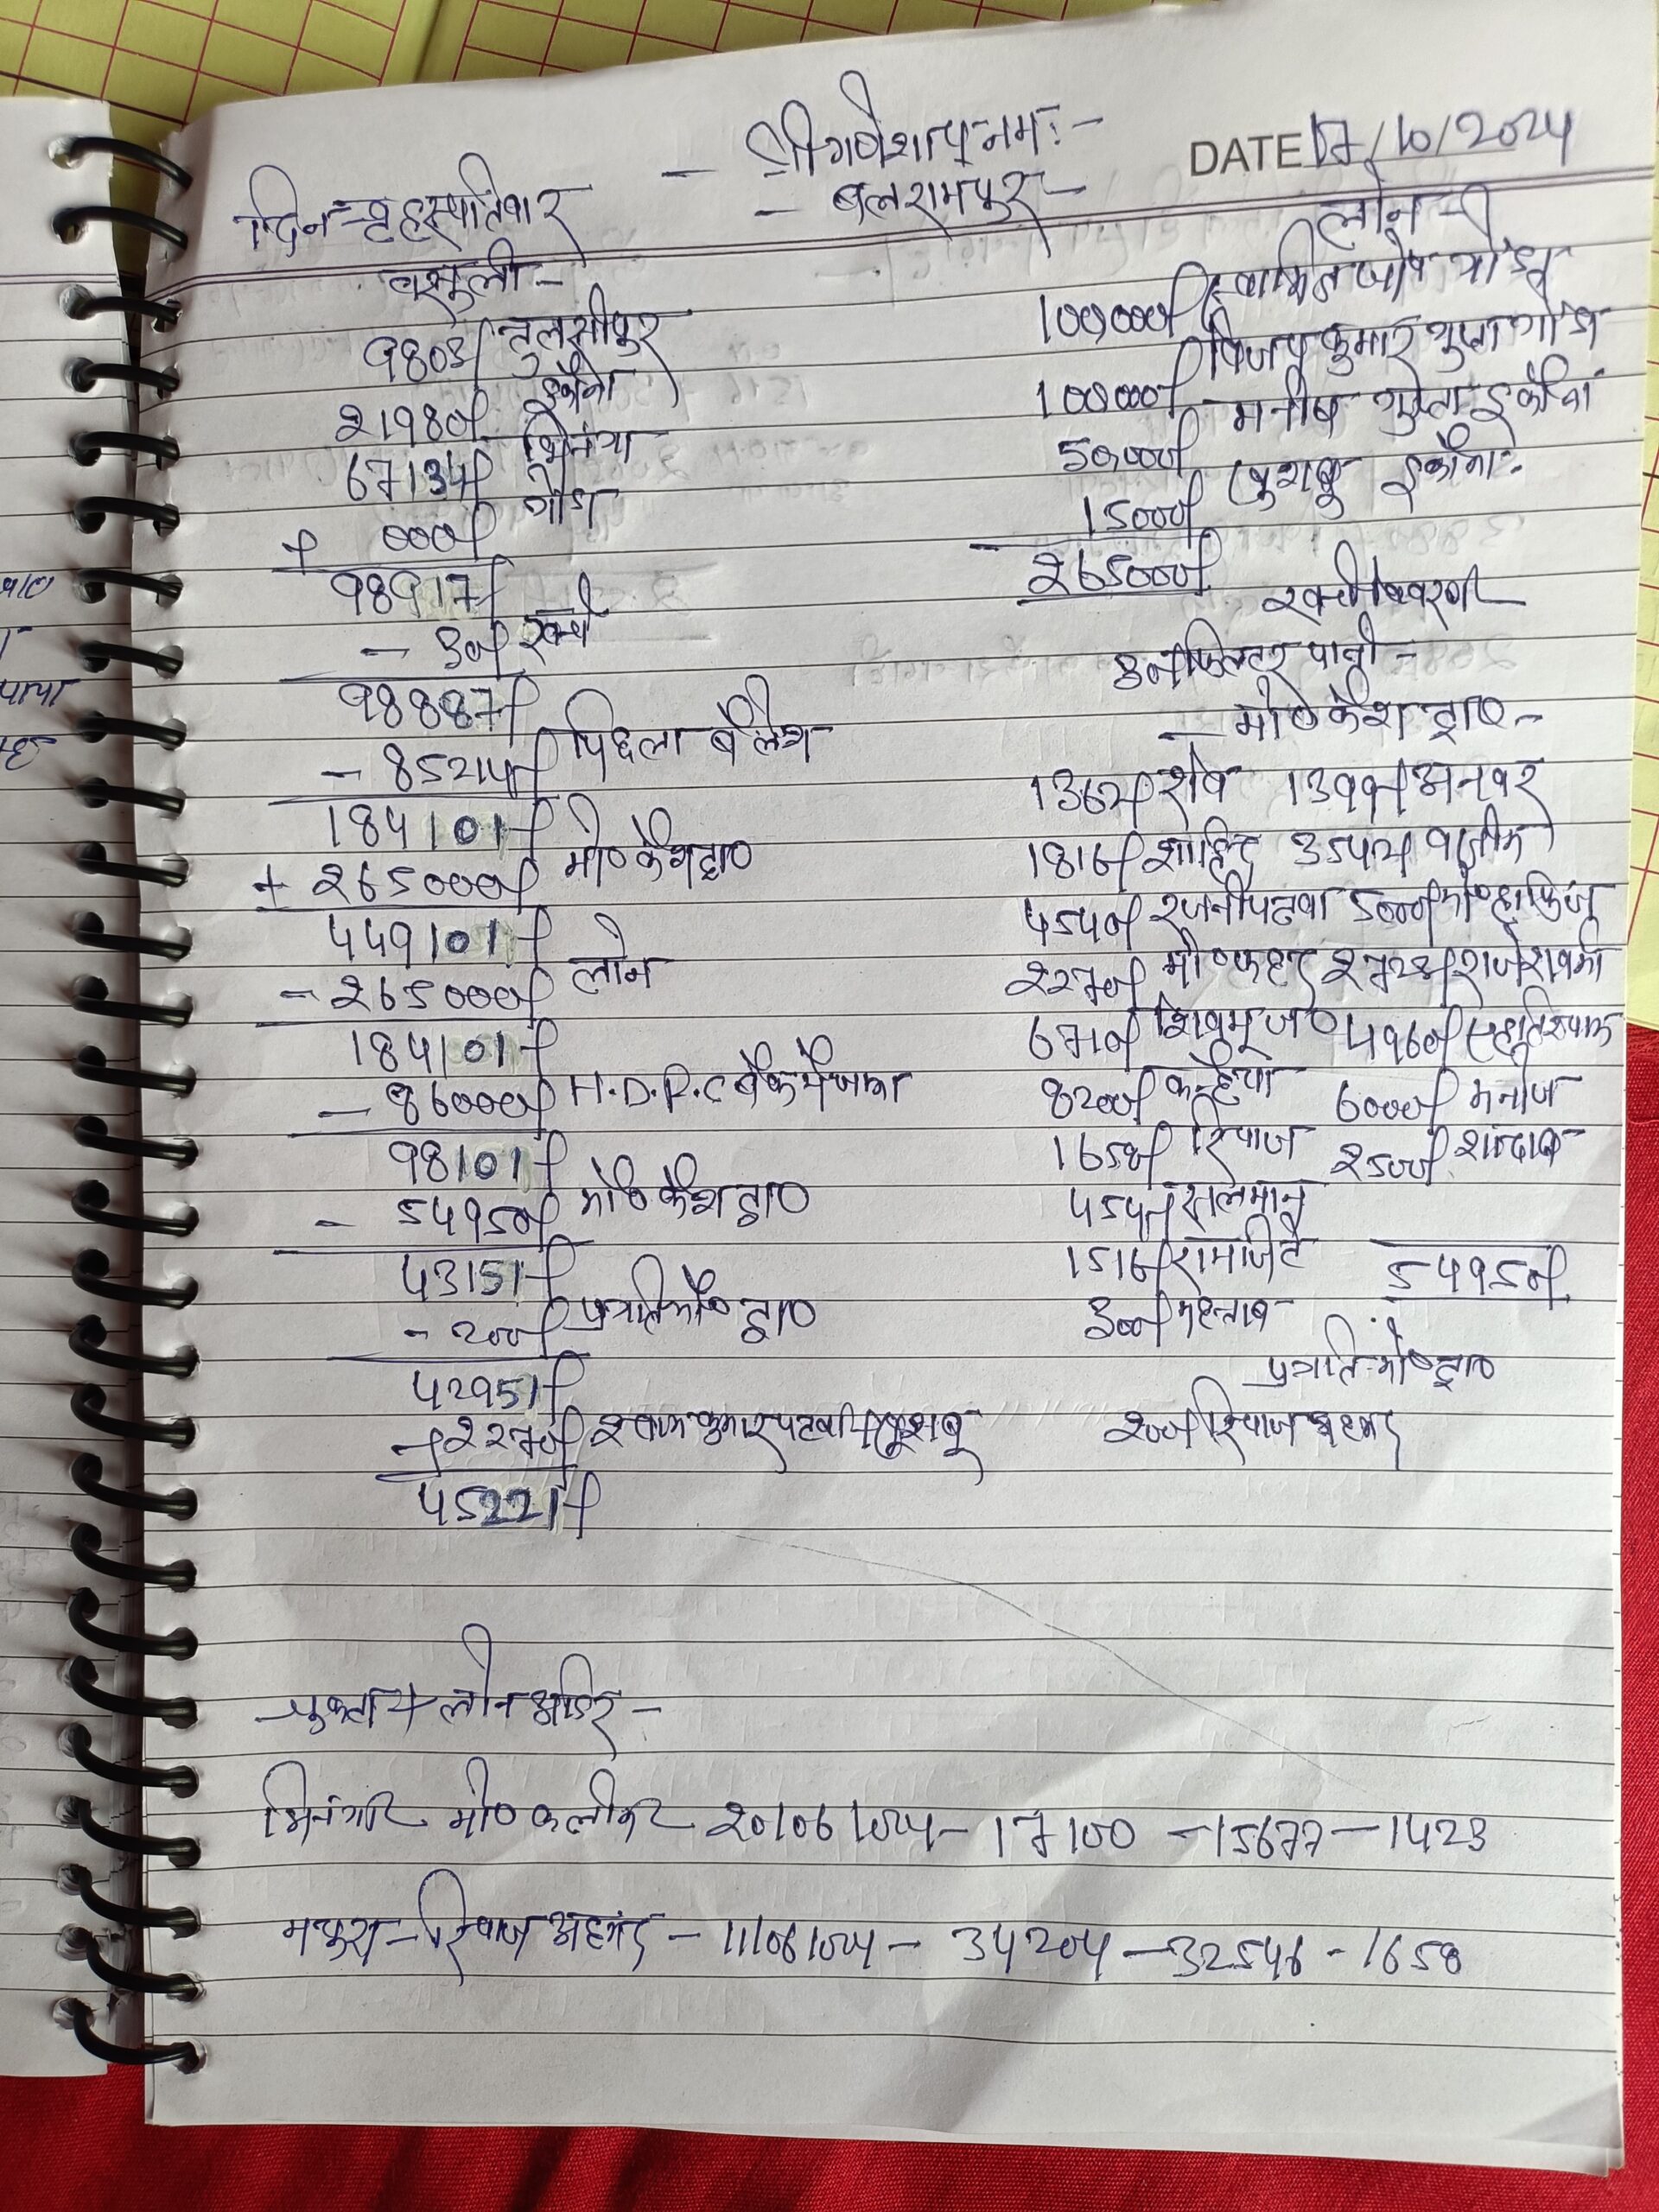 - श्री गणेशाय नमः -
DATE 17/10/2024
दिन - वृहस्पतिवार
- बलरामपुर -
वसूली -
लोन -
9803/ तुलसीपुर
21980/ इकौना
67134/ भिनगा
+ 000/ गोंडा
98917/
- 30/ खर्चा
98887/
- 85214/ पिछला बैलेंश
184101/
+ 265000/ मो० कैश द्वा०
449101/
- 265000/ लोन
184101/
- 86000/ H.D.F.C बैंक में जमा
98101/
- 54950/ मो० कैश द्वा०
43151/
- 200/ पत्राति मो० द्वा०
42951/
+ 2270/ खुशबू
45221/
100000/ गोंडा
100000/ विजय कुमार गुप्ता गोंडा
50000/ मनीष गुप्ता इकौना
15000/ खुशबू इकौना
265000/
खर्चा विवरण
30/ फिल्टर पानी -
- मो० कैश द्वा० -
1362/ शेष 1399/ अनवर
1816/ शाहिद 3542/
4540/ रजनी पटवा 5000/ मो० हाफिज
2270/ मो० फहद 2728/ राजेश वर्मा
6710/ 4960/
8200/ कन्हैया 6000/ मनोज
1658/ रियाज 2500/
454/ सलमान
1516/ रामजित
300/ महताब
54950/
पत्राति - मो० द्वा०
200/ रियाज अहमद
लोन आदि -
भिनगा - मो० कलीम 20/06/024 - 17100 - 15677 - 1423
मथुरा - रियाज अहमद - 11/06/024 - 34204 - 32546 - 1658